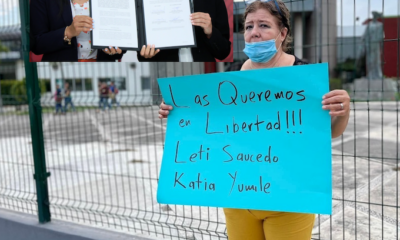 Las Queremos
en Libertad!!!
Leti Saucedo
Katia Yumile